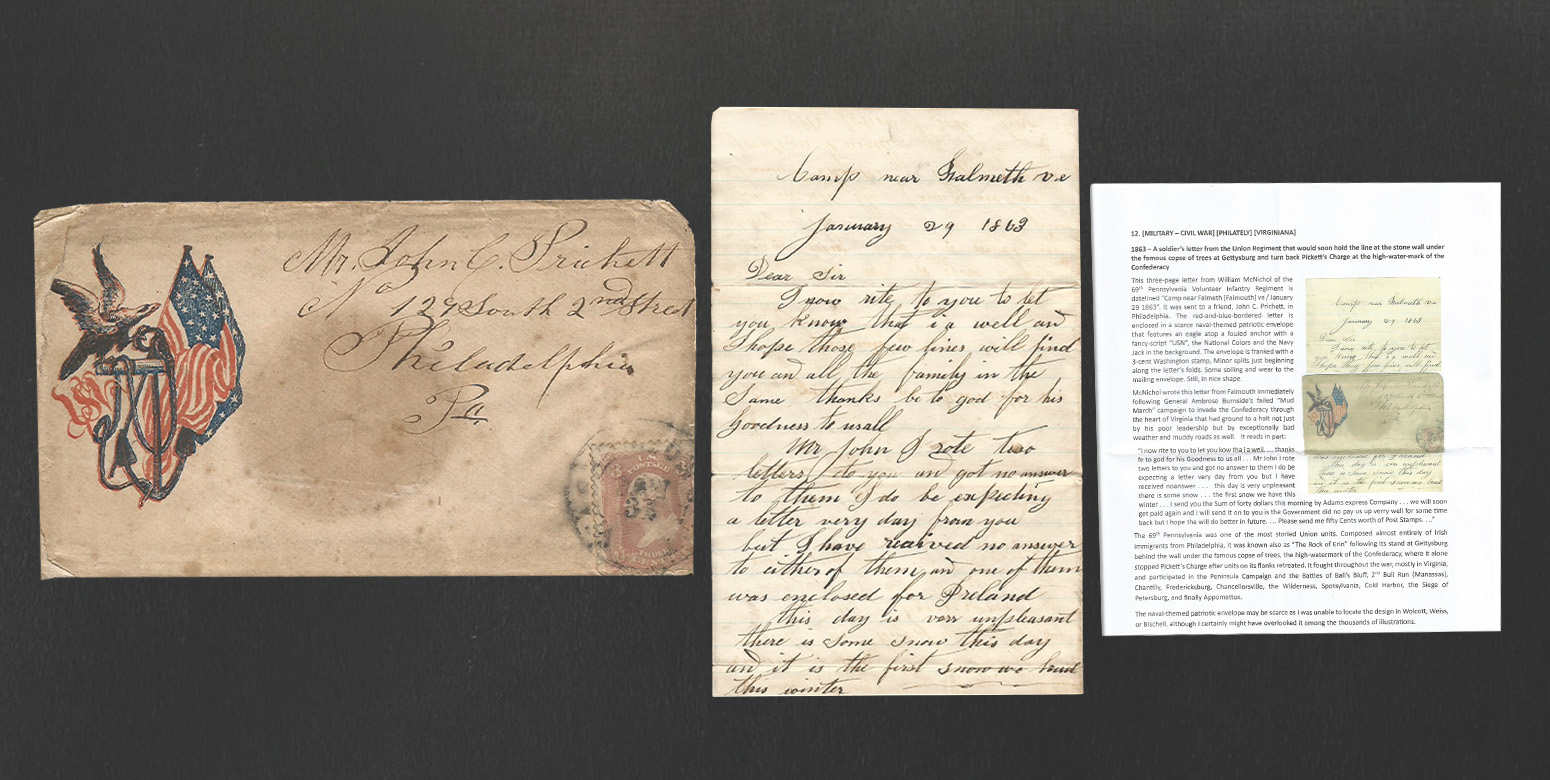 Mr. John C. Prichett
No 129 South 2nd Street
Philadelphia
Pa.
U.S. POSTAGE
Camp near Falmeth va
January 29 1863
Dear Sir
I now rite to you to let
you know that i a well and
I hope those few lines will find
you and all the family in the
Same thanks be to god for his
Goodness to usall
Mr John I rote two
letters to you and got no answer
to them I do be expecting
a letter very day from you
but I have received no answer
to either of them and one of them
was enclosed for Ireland
this day is verr unpleasant
there is some snow this day
and it is the first snow we have
this winter
12. [MILITARY – CIVIL WAR] [PHILATELY] [VIRGINIANA]
1863 – A soldier's letter from the Union Regiment that would soon hold the line at the stone wall under
the famous copse of trees at Gettysburg and turn back Pickett's Charge at the high-water-mark of the
Confederacy
This three-page letter from William McNichol of the
69th Pennsylvania Volunteer Infantry Regiment is
datelined "Camp near Falmeth [Falmouth] va / January
29 1863". It was sent to a friend, John C. Prichett, in
Philadelphia. The red-and-blue-bordered letter is
enclosed in a scarce naval-themed patriotic envelope
that features an eagle atop a fouled anchor with a
fancy-script "USN", the National Colors and the Navy
Jack in the background. The envelope is franked with a
3-cent Washington stamp, Minor splits just beginning
along the letter's folds. Some soiling and wear to the
mailing envelope. Still, in nice shape.
McNichol wrote this letter from Falmouth immediately
following General Ambrose Burnside's failed "Mud
March" campaign to invade the Confederacy through
the heart of Virginia that had ground to a halt not just
by his poor leadership but by exceptionally bad
weather and muddy roads as well. It reads in part:
"I now rite to you to let you kow tha I a well. . . . thanks
fe to god for his Goodness to us all . . . Mr John I rote
two letters to you and got no answer to them I do be
expecting a letter very day from you but I have
received noanswer . . . this day is very unpleasant
there is some snow . . . the first snow we have this
winter . . . I send you the Sum of forty dollars this morning by Adams express Company . . . we will soon
get paid again and i will send it on to you is the Government did no pay us up verry well for some time
back but I hope the will do better in future. . . . Please send me fifty Cents worth of Post Stamps. . . ."
The 69th Pennsylvania was one of the most storied Union units. Composed almost entirely of Irish
immigrants from Philadelphia, it was known also as "The Rock of Erin" following its stand at Gettysburg
behind the wall under the famous copse of trees, the high-watermark of the Confederacy, where it alone
stopped Pickett's Charge after units on its flanks retreated. It fought throughout the war, mostly in Virginia,
and participated in the Peninsula Campaign and the Battles of Ball's Bluff, 2nd Bull Run (Manassas),
Chantilly, Fredericksburg, Chancellorsville, the Wilderness, Spotsylvania, Cold Harbor, the Siege of
Petersburg, and finally Appomattox.
The naval-themed patriotic envelope may be scarce as I was unable to locate the design in Wolcott, Weiss,
or Bischell, although I certainly might have overlooked it among the thousands of illustrations.